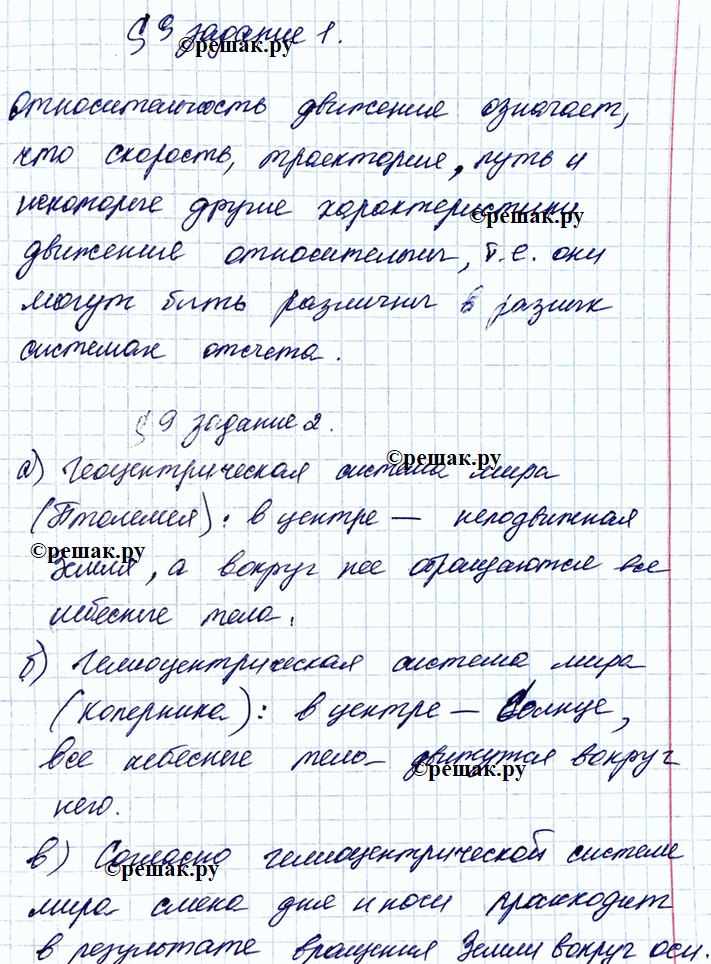 § 9 задание 1.
©решак.ру
Относительность движения означает,
что скорость, траектория, путь и
некоторые другие характеристики
©решак.ру
движения относительны, т.е. они
могут быть различны в разных
системах отсчета.
§ 9 задание 2.
©решак.ру
а) Геоцентрическая система мира
(Птолемея): в центре — неподвижная
©решак.ру
Земля, а вокруг нее обращаются все
небесные тела.
б) Гелиоцентрическая система мира
(Коперника): в центре — Солнце,
все небесные тела движутся вокруг
©решак.ру
него.
в) Согласно гелиоцентрической системе
©решак.ру
мира смена дня и ночи происходит
в результате вращения Земли вокруг оси.